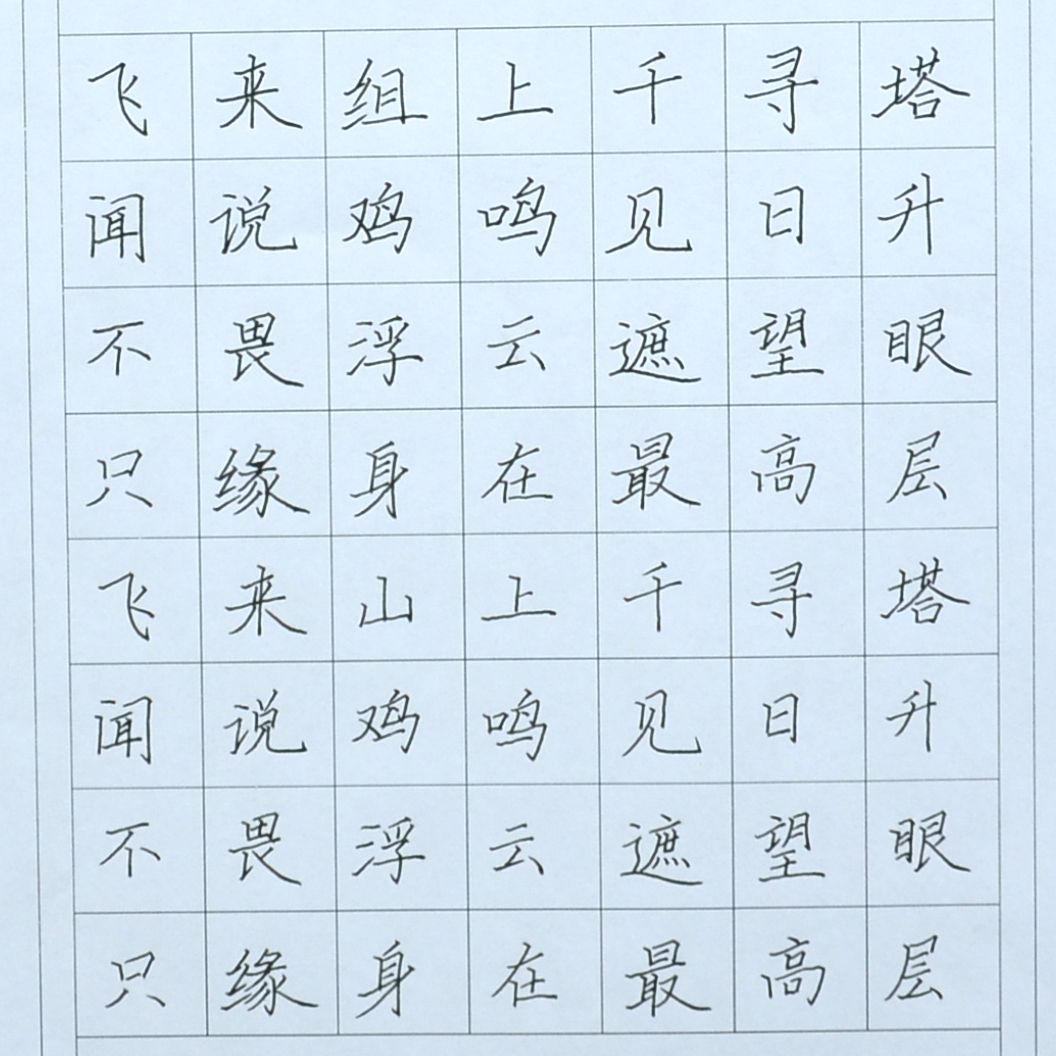 飞来组上千寻塔
闻说鸡鸣见日升
不畏浮云遮望眼
只缘身在最高层
飞来山上千寻塔
闻说鸡鸣见日升
不畏浮云遮望眼
只缘身在最高层